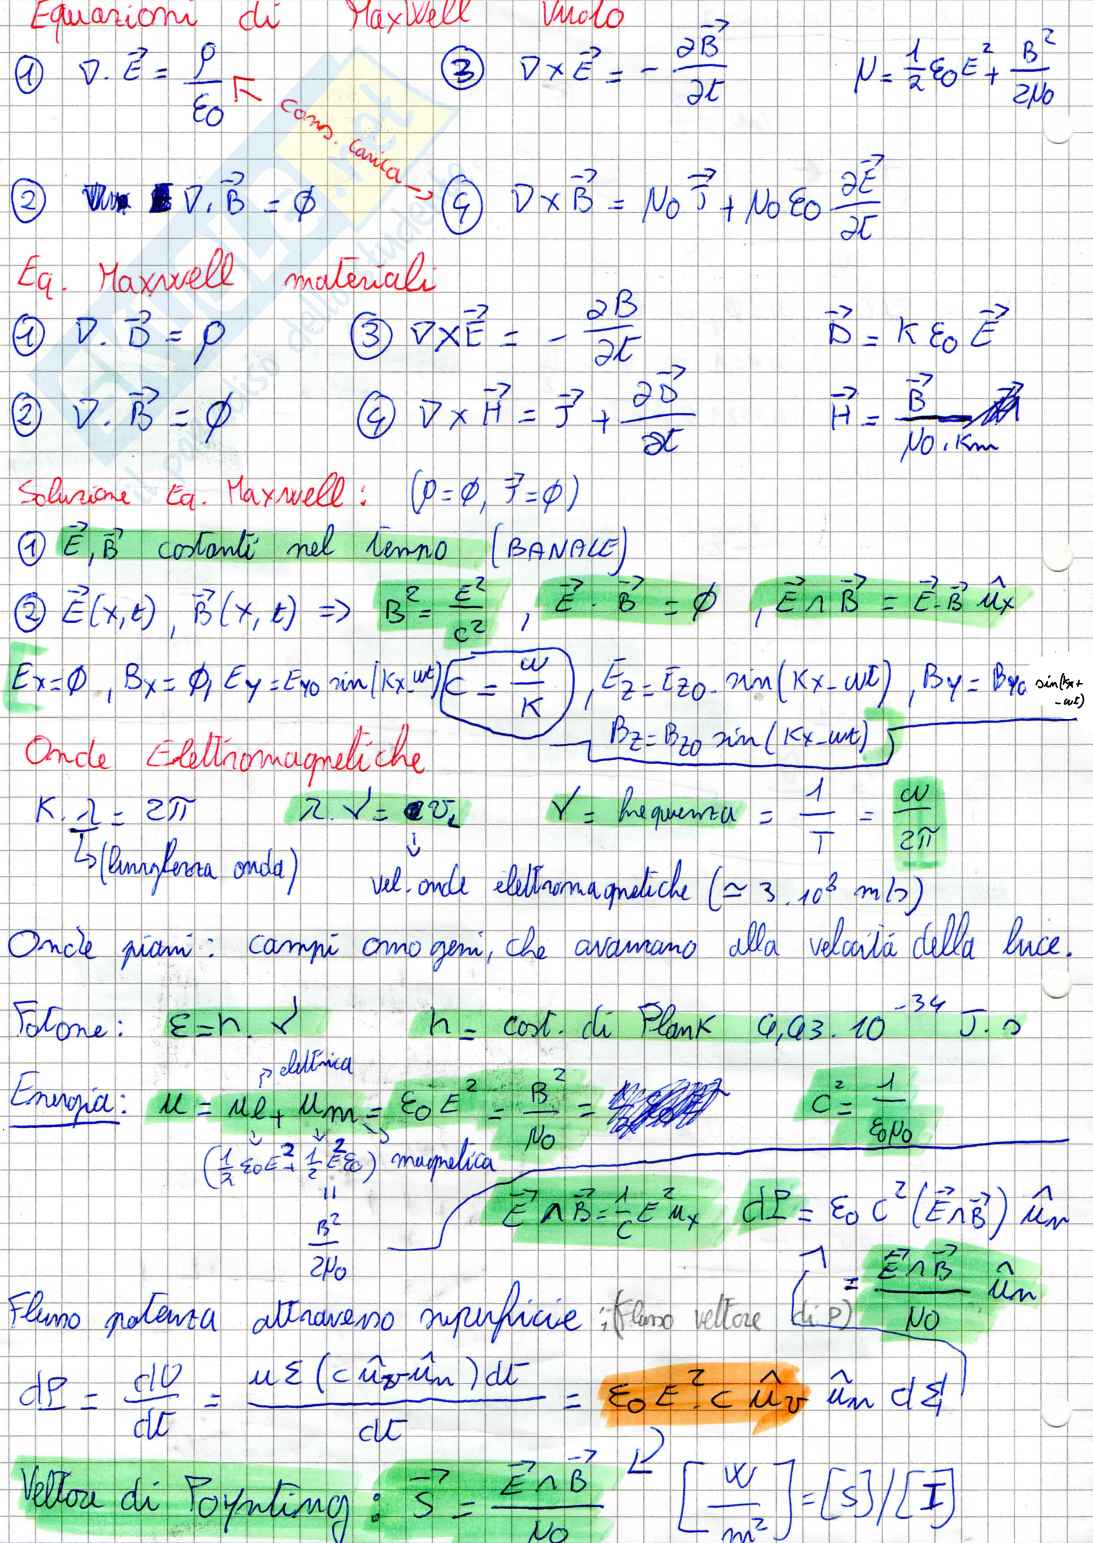 Equazioni di MaxWell Vuoto
① ∇·E⃗ = ρ/ε0 ③ ∇×E⃗ = - ∂B⃗/∂t μ = 1/2 ε0E² + B²/2μ0
cons. carica
② ∇·B⃗ = ∅ ④ ∇×B⃗ = μ0 J⃗ + μ0 ε0 ∂E⃗/∂t
Eq. Maxwell materiali
① ∇·D⃗ = ρ ③ ∇×E⃗ = - ∂B/∂t D⃗ = K ε0 E⃗
② ∇·B⃗ = ∅ ④ ∇×H⃗ = J⃗ + ∂D⃗/∂t H⃗ = B⃗/μ0·Km
Soluzione Eq. Maxwell: (ρ=∅, J⃗=∅)
① E⃗, B⃗ costanti nel tempo (BANALE)
② E⃗(x,t), B⃗(x,t) => B² = E²/c², E⃗·B⃗ = ∅, E⃗∧B⃗ = E⃗·B⃗ ûx
Ex=∅, Bx=∅, Ey=Ey0 sin(Kx-ωt) (C = ω/K), Ez=Ez0·sin(Kx-ωt), By=By0 sin(kx+-ωt)
Bz=Bz0 sin(Kx-ωt)
Onde Elettromagnetiche
K·λ = 2π λ·ν = v ν = frequenza = 1/T = ω/2π
↳(lunghezza onda) vel. onde elettromagnetiche (≃ 3·10⁸ m/s)
Onde piani: campi omogeni, che avanzano alla velocità della luce.
Fotone: ε=h·ν h= cost. di Plank 4,43·10⁻³⁴ J·s
elettrica
Energia: u = ue+um = ε0 E² = B²/μ0 = C² = 1/ε0μ0
(1/2 ε0E² + 1/2 E²ε0) magnetica
= B²/2μ0
E⃗∧B⃗ = 1/c E² ux dP = ε0 C² (E⃗∧B⃗) ûn
= E⃗∧B⃗/μ0 ûn
Flusso potenza attraverso superficie: (flusso vettore di P)
dP = dU/dt = u Σ (c ûv·ûn) dt/dt = ε0 E²·c ûv ûn dΣ
Vettore di Poynting: S⃗ = E⃗∧B⃗/μ0 [W/m²] = [S]/[I]